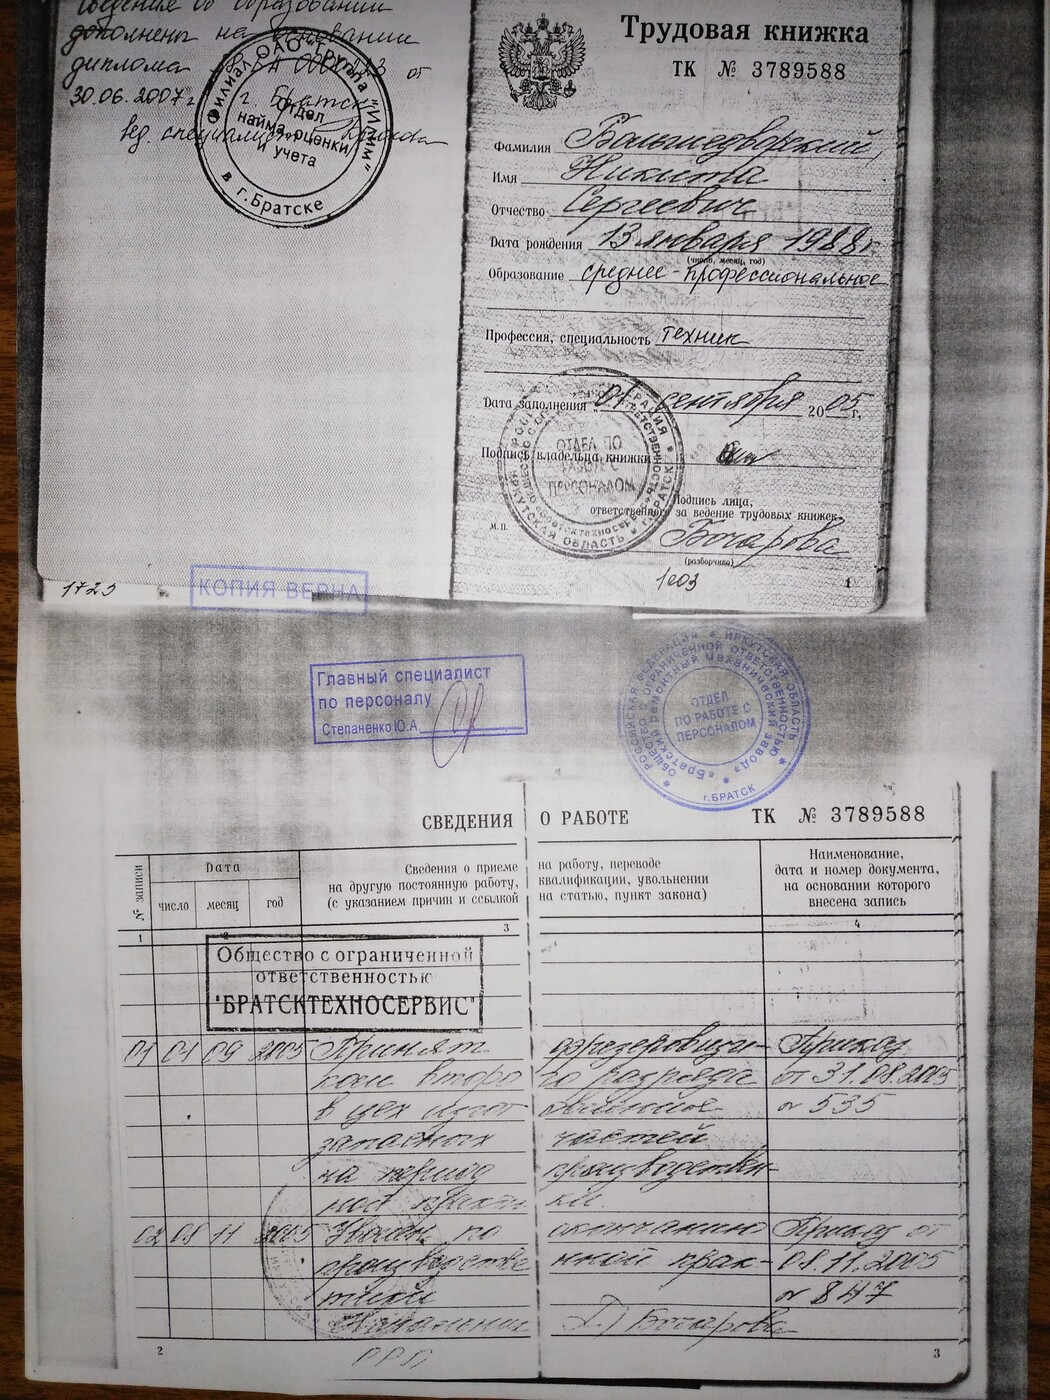 Сведения об образовании
дополнены на основании
диплома от
30.06.2007г. г. Братск
вед. специалист
Филиал ОАО "Группа "ИЛИМ"
в г.Братске
Отдел
найма, оценки
и учета
Трудовая книжка
ТК № 3789588
Фамилия Большедворский
Имя Никита
Отчество Сергеевич
Дата рождения 13 января 1988 г.
(число, месяц, год)
Образование среднее-профессиональное
Профессия, специальность техник
Дата заполнения „01" сентября 2005 г.
Подпись владельца книжки
ОТДЕЛ ПО
РАБОТЕ С
ПЕРСОНАЛОМ
Подпись лица,
ответственного за ведение трудовых книжек
М.П.
Бочарова
(разборчиво)
1729
1003
1
КОПИЯ ВЕРНА
Главный специалист
по персоналу
Степаненко Ю.А.
РОССИЙСКАЯ ФЕДЕРАЦИЯ * ИРКУТСКАЯ ОБЛАСТЬ
ОБЩЕСТВО С ОГРАНИЧЕННОЙ ОТВЕТСТВЕННОСТЬЮ
«Братский ремонтный механический завод»
ОТДЕЛ
ПО РАБОТЕ С
ПЕРСОНАЛОМ
г.БРАТСК
СВЕДЕНИЯ О РАБОТЕ ТК № 3789588
№ записи
Дата
число месяц год
Сведения о приеме на работу, переводе
на другую постоянную работу, квалификации, увольнении
(с указанием причин и ссылкой на статью, пункт закона)
Наименование,
дата и номер документа,
на основании которого
внесена запись
1 2 3 4
Общество с ограниченной
ответственностью
"БРАТСКТЕХНОСЕРВИС"
01 01 09 2005 Принят фрезеровщи- Приказ
ком второго разряда от 31.08.2005
в цех изготовление № 535
запасных частей
на период производствен-
ной практики
02 08 11 2005 Уволен по окончанию Приказ от
производственной прак- 08.11.2005
тики № 847
Начальник Бочарова
2
РРП
3